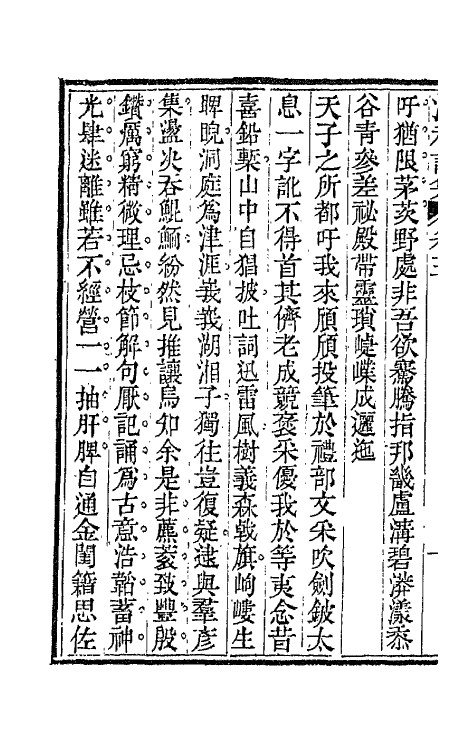 吁猶限茅茨野處非吾欲騫騰指邦畿盧溝碧漭漾泰
谷青參差祕殿帶靈瑣崨嶫成邐迤
天子之所都吁我來頎頎投筆於禮部文采吹劍鈹太
息一字訛不得首其儕老成競褒采優我於等夷念昔
喜鉛槧山中自猖披吐詞迅雷風樹義森戟旗岣嶁生
睥睨洞庭爲津涯峩峩湖湘子獨往豈復疑逮與羣彦
集盪决吞鯤鮞紛然見推讓烏知余是非藨蔉致豐殷
鑽厲窮精微理忌枝節解句厭記誦爲古意浩韜蓄神
光肆迷離雖若不經營一一抽肝脾自通金閨籍思佐